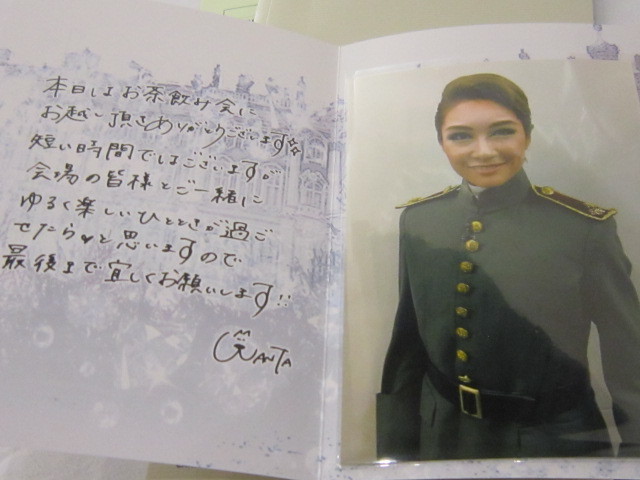 本日はお茶飲み会に
お越し頂きありがとうございます☆
短い時間ではございますが
会場の皆様とご一緒に
ゆるく楽しいひとときが過ご
せたら♥と思いますので
最後まで宜しくお願いします!!